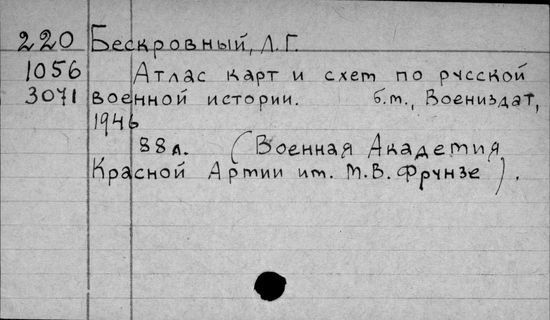 220 Бескровный, Л.Г.
1056 Атлас карт и схем по русской
3071 военной истории. б.м., Воениздат,
1946
88 л. (Военная Академия
Красной Армии им. М.В. Фрунзе).